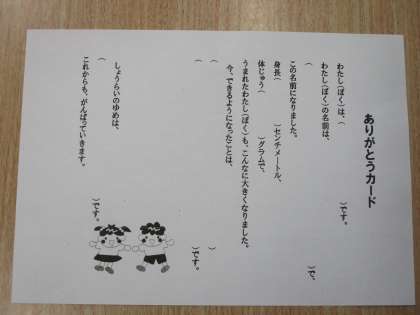 ありがとうカード
わたし(ぼく)は、(　　　)です。
わたし(ぼく)の名前は、
(　　　)で、
この名前になりました。
身長(　　　)センチメートル、
体じゅう(　　　)グラムで、
うまれたわたし(ぼく)も、こんなに大きくなりました。
今、できるようになったことは、
(　　　)
(　　　)です。
しょうらいのゆめは、
(　　　)です。
これからも、がんばっていきます。